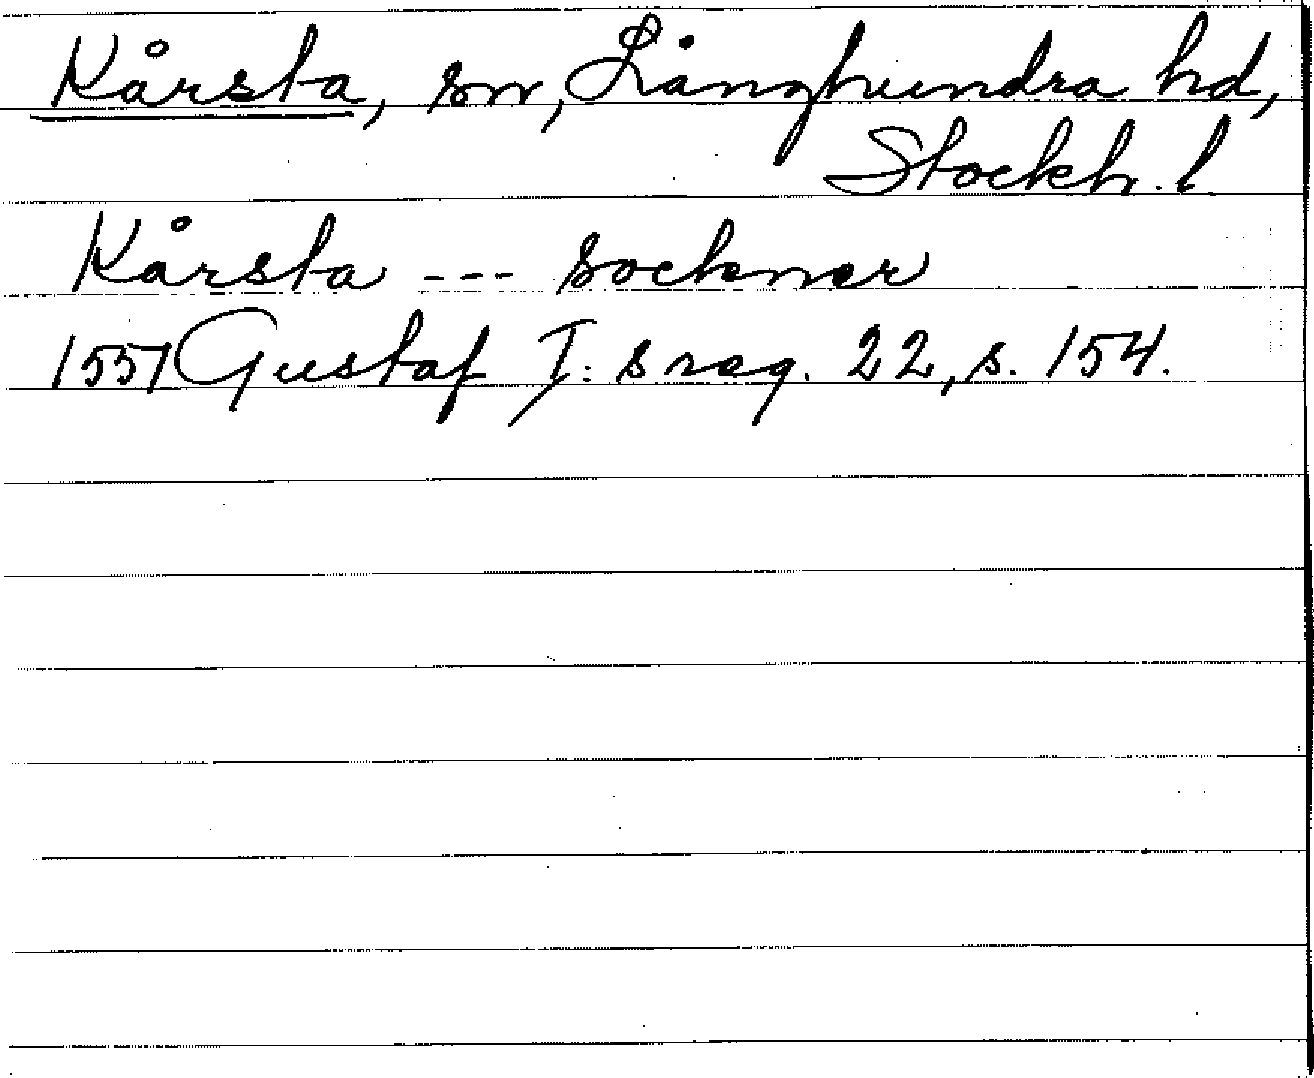 Kårsta, sn, Långhundra hd,
Stockh. l
Kårsta --- sockner
1551 Gustaf I:s reg. 22, s. 154.